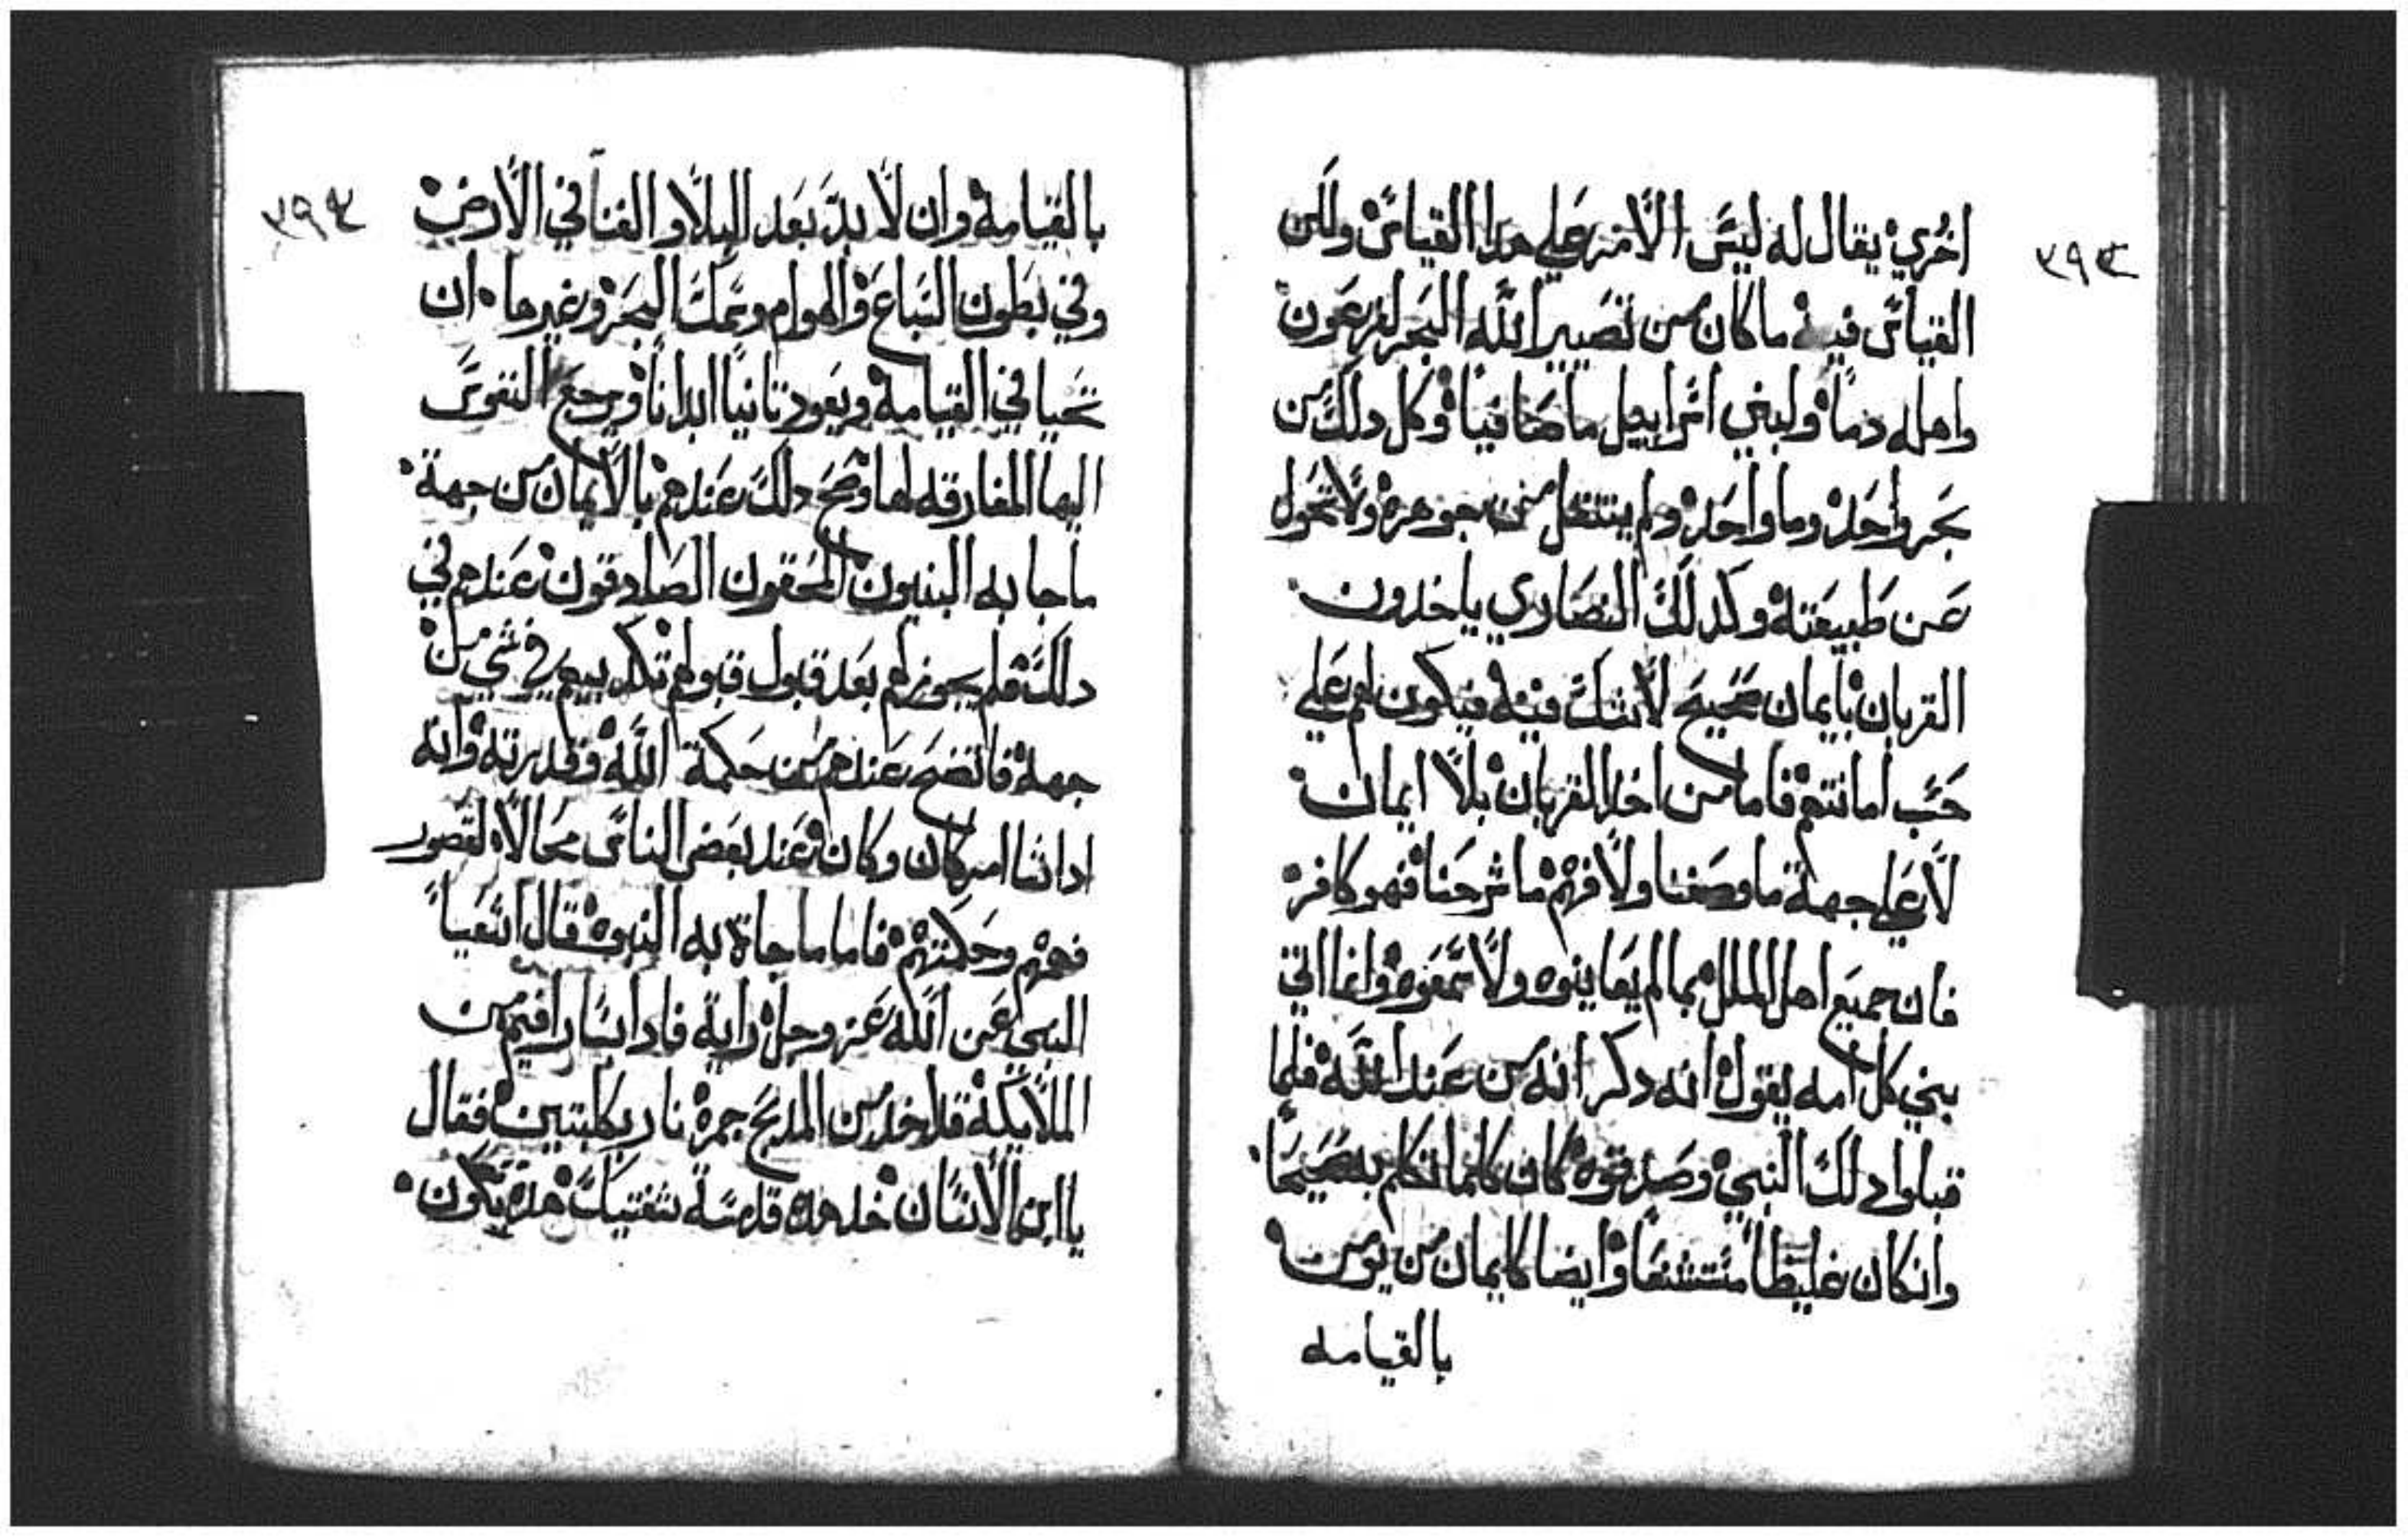 ٣٩٣
اخري يقال له ليس الامر علي هدا القياس ولكن
القياس فيه ما كان من تصيير الله البحر لفرعون
واهله دما ولبني اسراييل ما صافيا وكل دلك من
بحر واحد وما واحد ولم ينتقل من جوهره ولا تحول
عن طبيعته وكدلك النصاري ياخدون
القربان بايمان صحيح لا شك فيه فيكون لهم علي
حسب امانتهم فاما من اخد القربان بلا ايمان
لا علي جهة ما وصفنا ولا فهم ما شرحنا فهو كافر
فان جميع اهل الملل بما لم يعاينوه ولا سمعوه وانما اتي
بني كل امه يقول انه دكر انه من عند الله فلما
قبلوا دلك النبي وصدقوه كان كلما تكلم به صحيحا
وانكان غليظا مستشنعا وايضا كايمان من يومن
بالقيامه
٣٩٤
بالقيامة وان لا بد بعد البلا والفنا في الارض
وفي بطون السباع والهوام وسمك البحر وغيرها ان
تحيا في القيامة ويعود تانيا ابدانا ويرجع النفوس
اليها المفارقه لها وصح دلك عندهم بالايمان من جهة
ما جا به النبيون المحقون الصادقون عندهم في
دلك فلم يجوز لهم بعد قبول قبولهم تكديبهم في شي من
جهة فاتضح عندهم من حكمة الله وقدرته وانه
ادا شا امر كان وكان عند بعض الناس محالا لقصور
فهمهم وحكمتهم فاما ما جاة به النبوه فقال اشعيا
النبي عن الله عز وجل رايه فادا بسارافيم من
الملايكة قد اخد من المدبح جمرة نار بكلبتين فقال
يا ابن الانسان خد هده قدسة شفتيك هده تكون